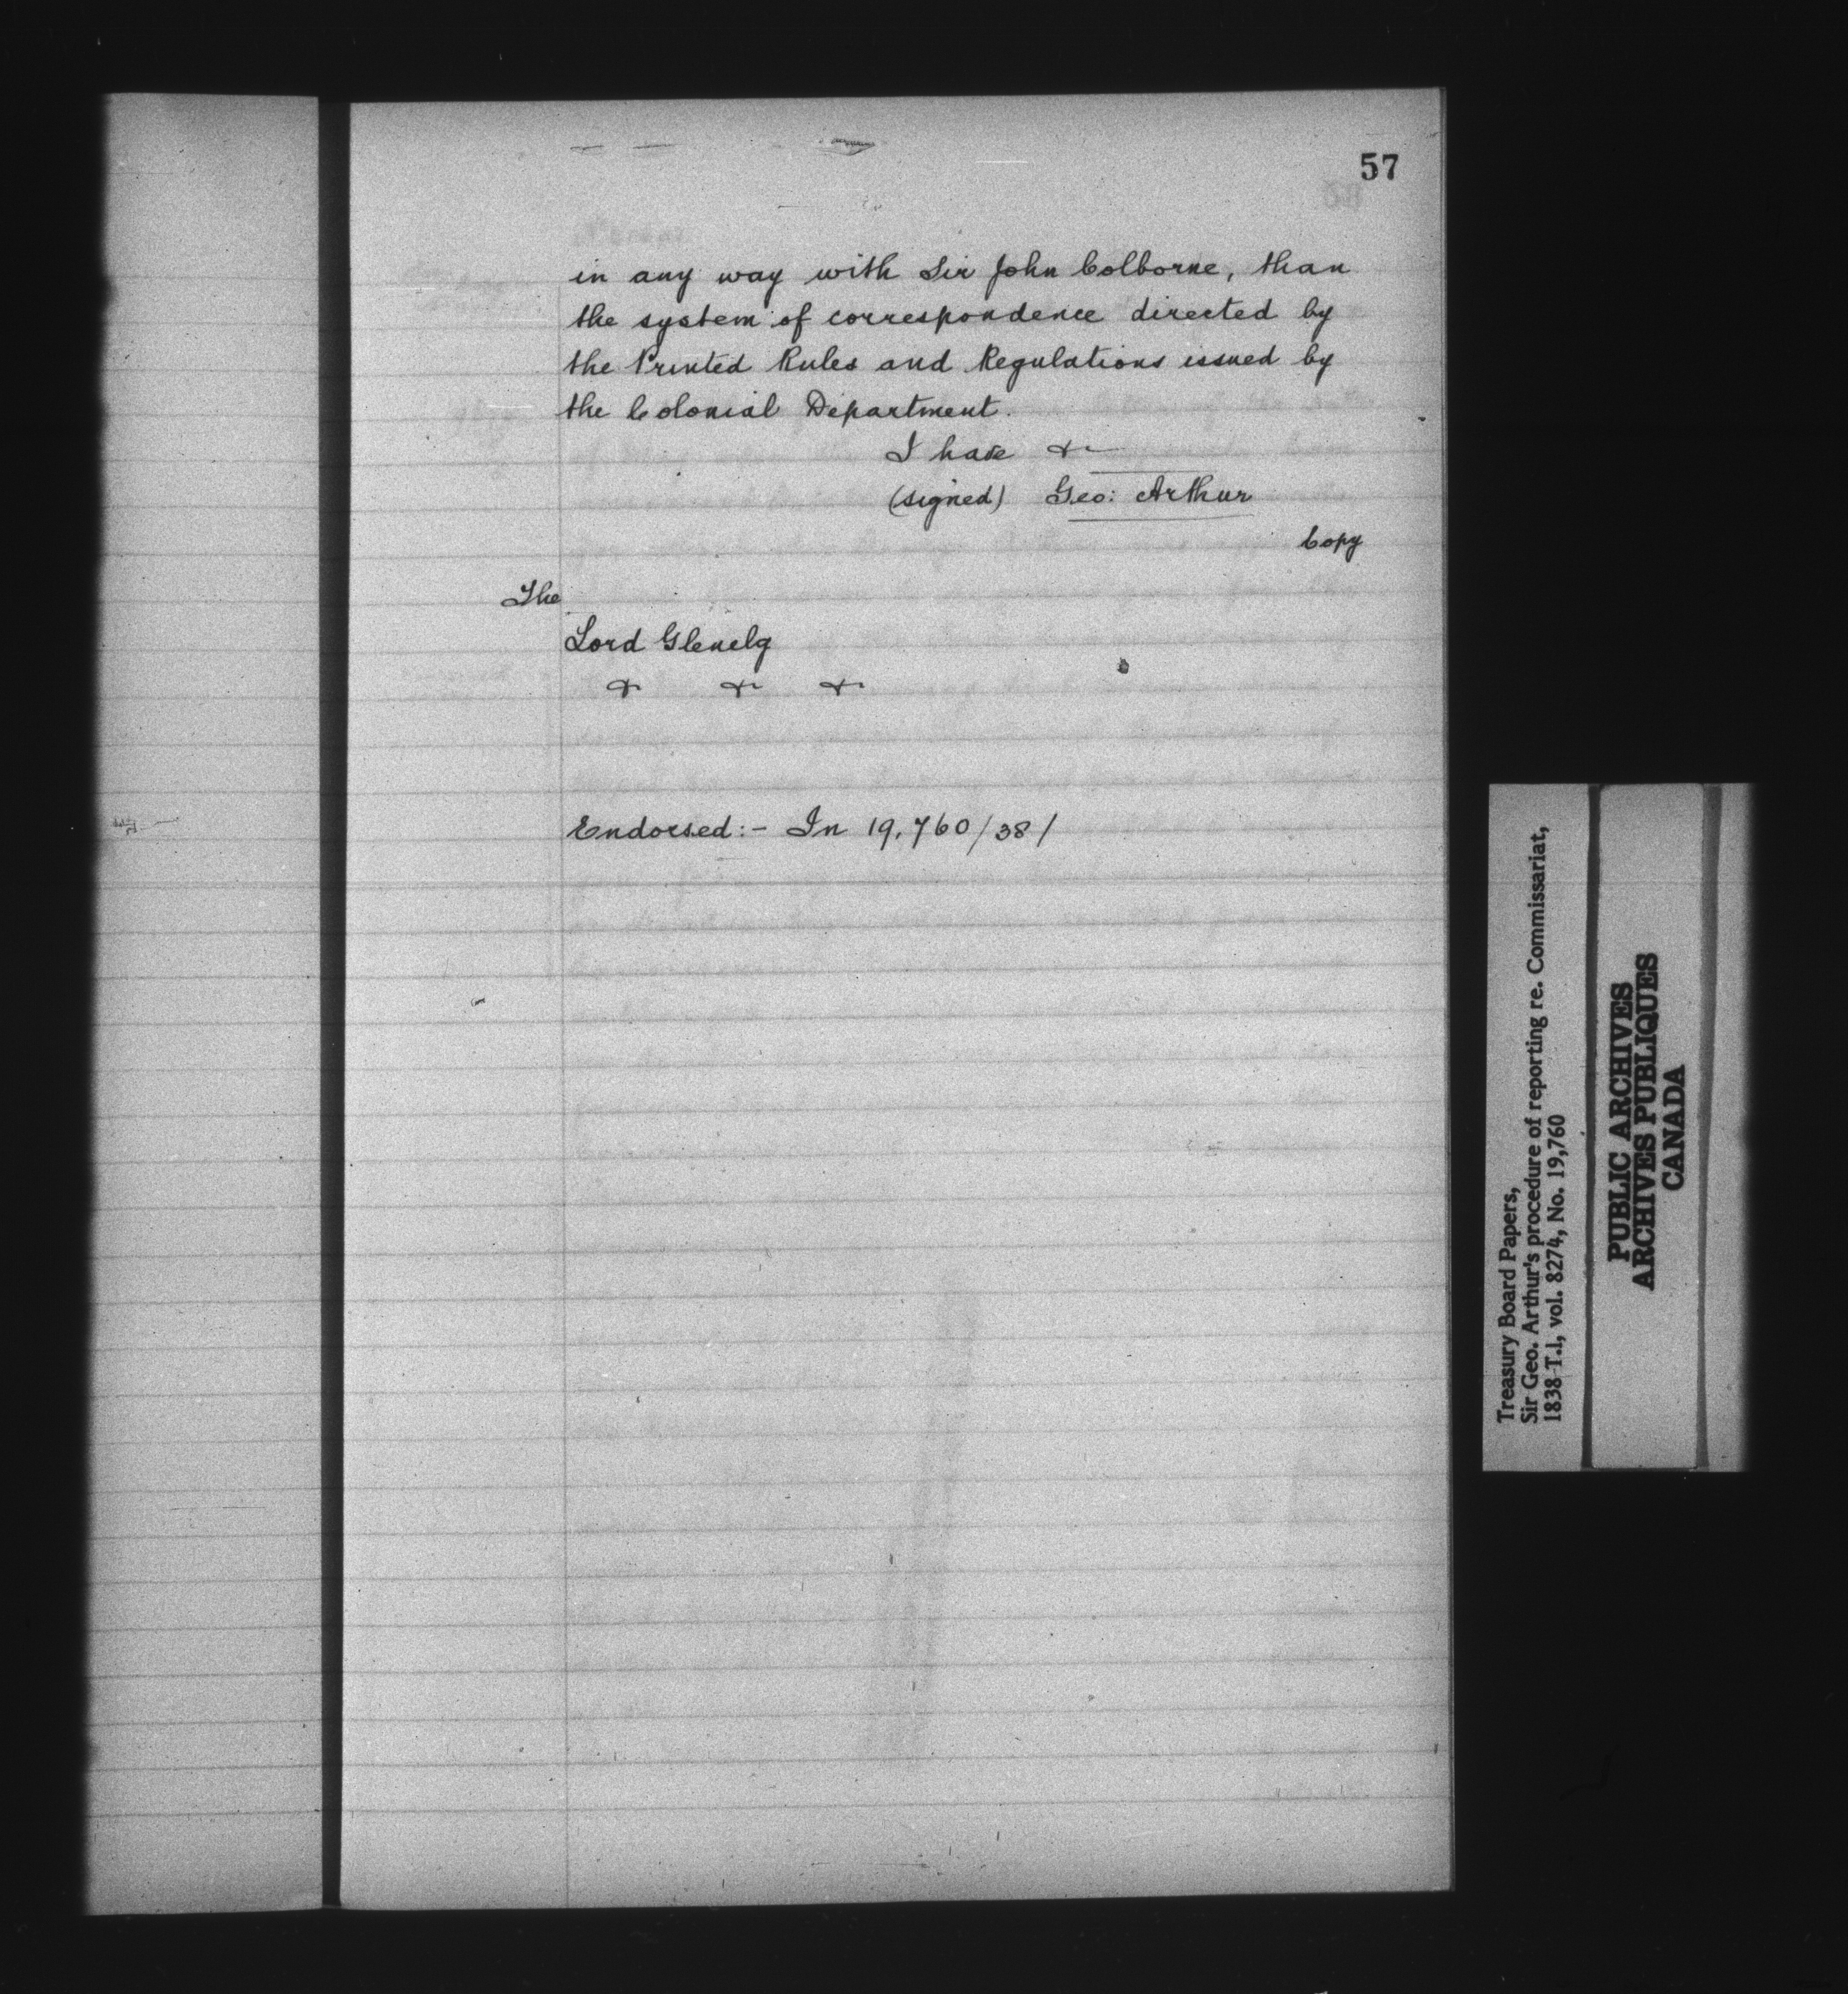 57
in any way with Sir John Colborne, than
the system of correspondence directed by
the Printed Rules and Regulations issued by
the Colonial Department.
I have &c
(signed) Geo: Arthur
Copy
The
Lord Glenelg
& &c &c
Endorsed:- In 19,760/38/
Treasury Board Papers,
Sir Geo. Arthur's procedure of reporting re. Commissariat,
1838-T.1, vol. 8274, No. 19,760
PUBLIC ARCHIVES
ARCHIVES PUBLIQUES
CANADA